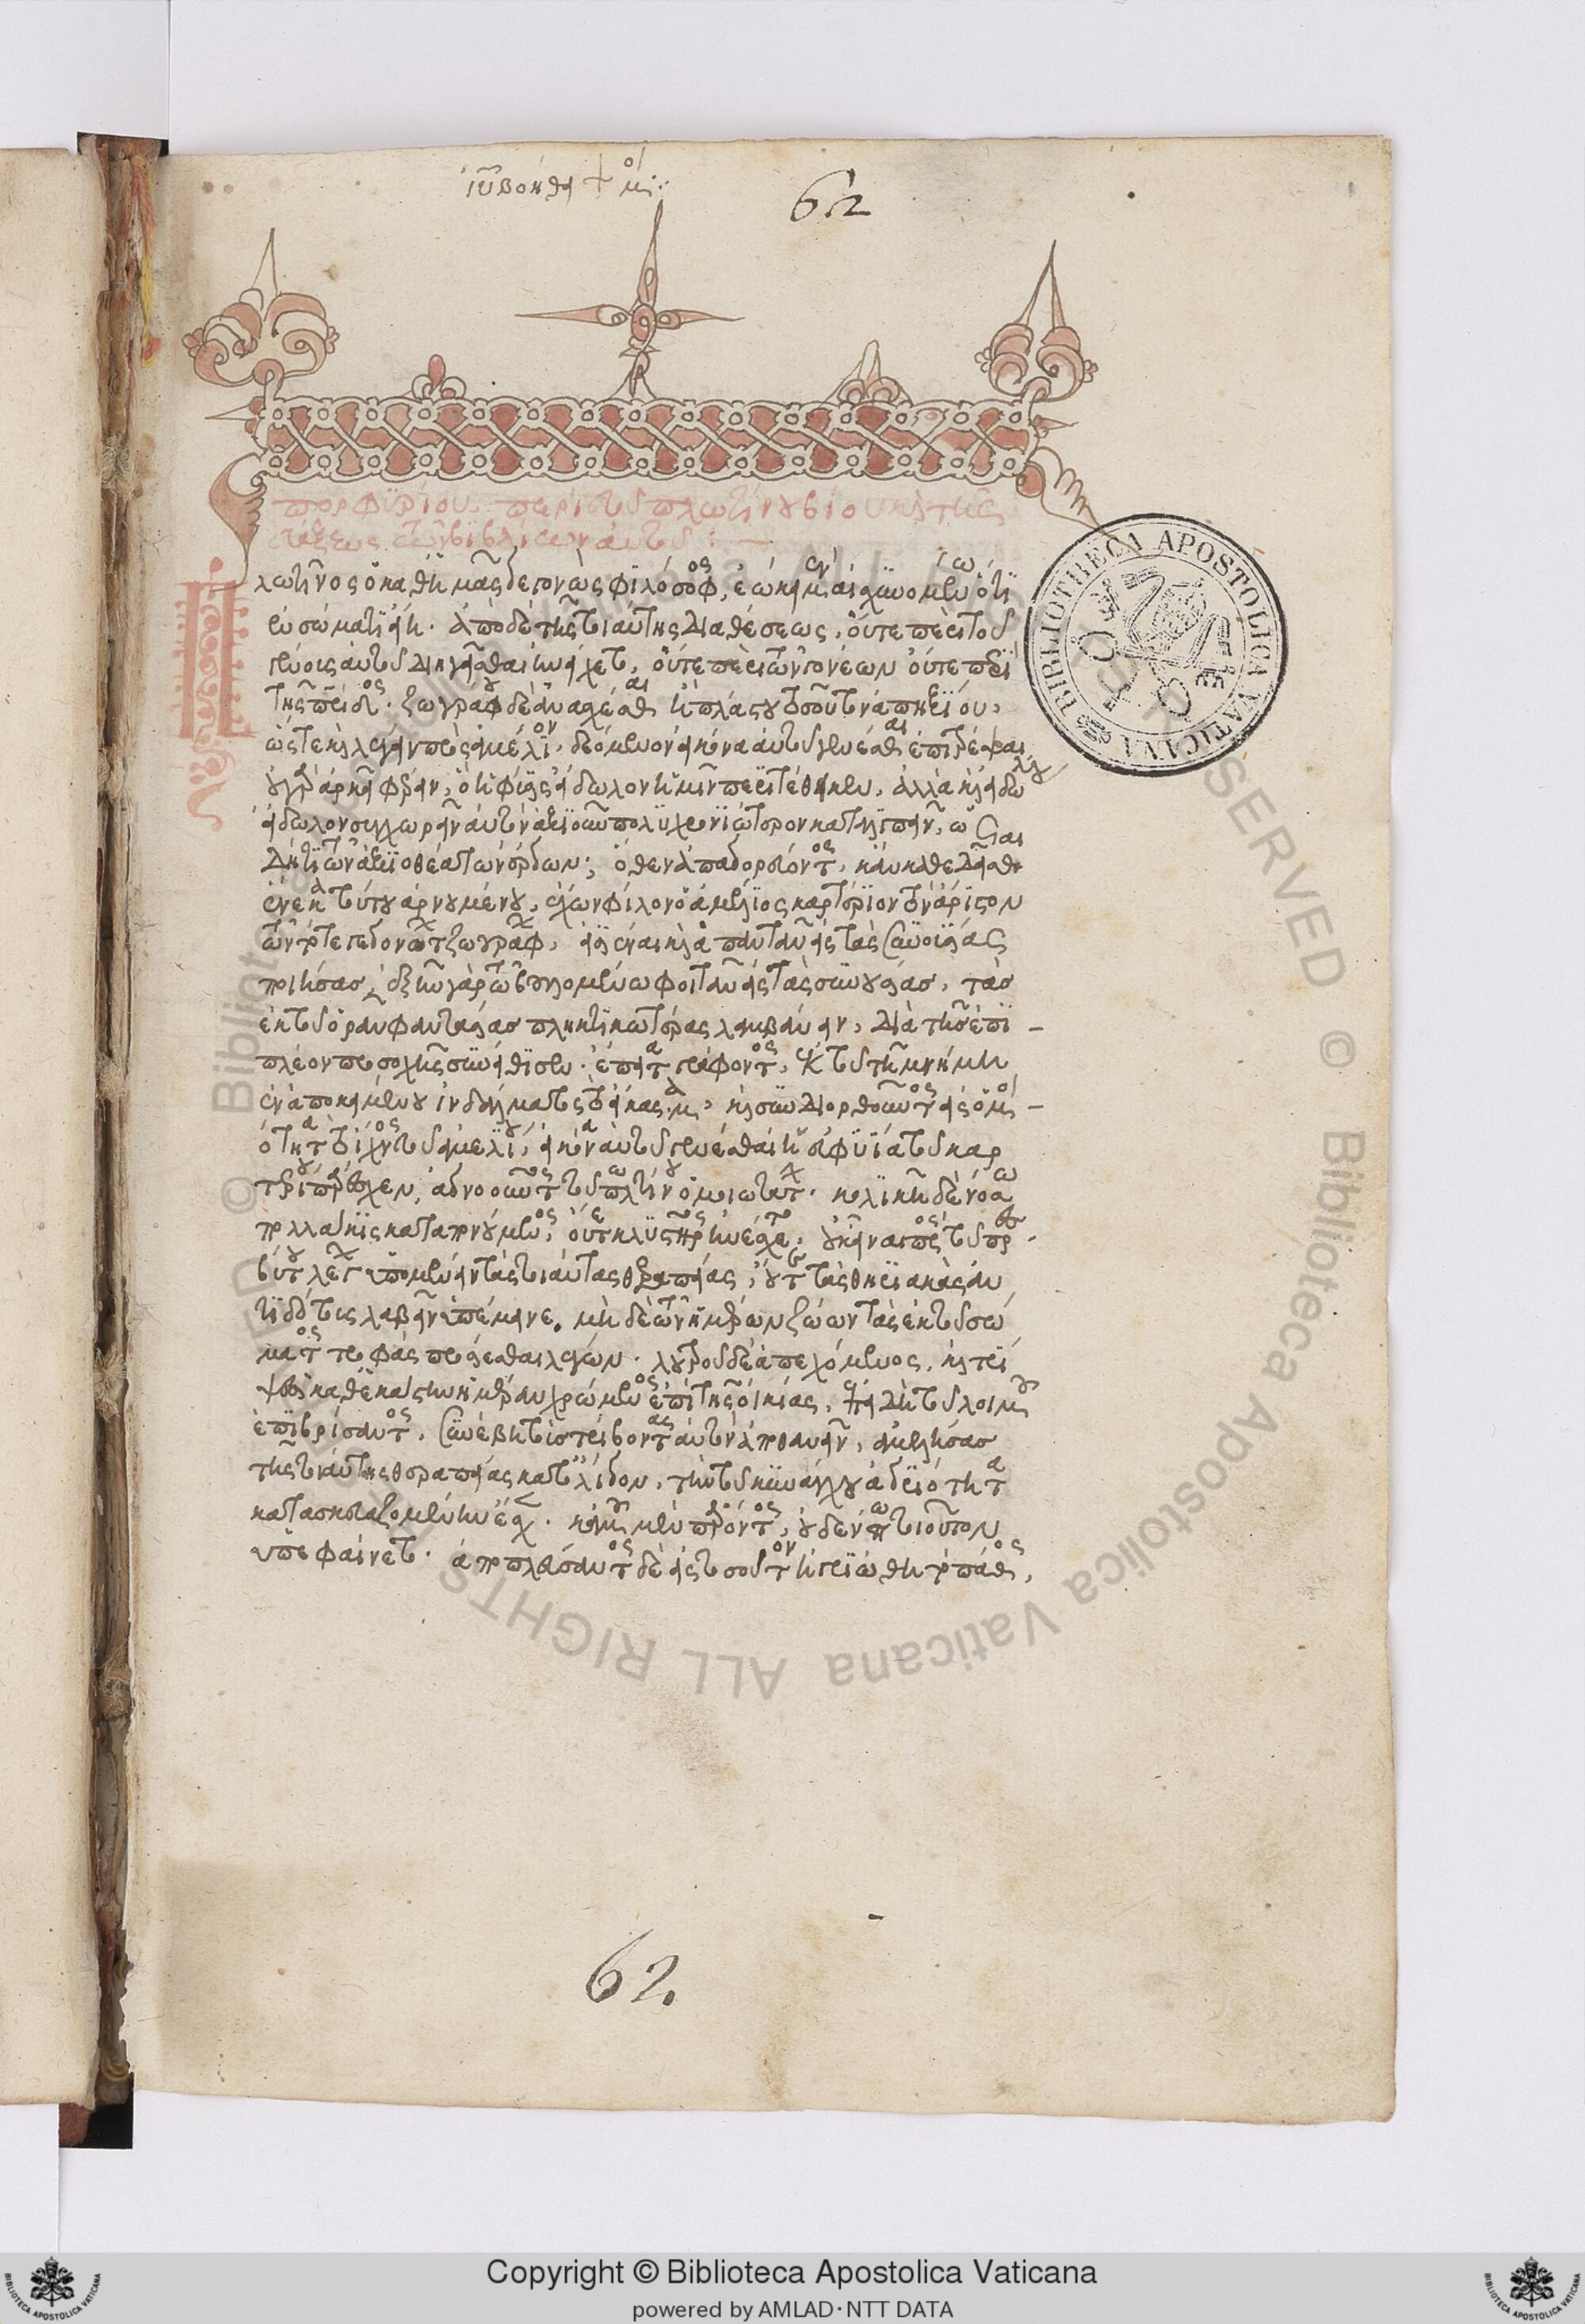 ἰῦ βοήθει + μοι:·
62
πορφυρίου περὶ τοῦ πλωτίνου βίου καὶ τῆς
τάξεως τῶν βιβλίων αὐτοῦ : —
Πλωτῖνος ὁ καθ' ἡμᾶς γεγονὼς φιλόσοφος, ἐώκει μὲν αἰσχυνομένω ὅτι
ἐν σώματι εἴη. ἀπὸ δὲ τῆς τοιαύτης διαθέσεως, οὔτε περὶ τοῦ
γένους αὐτοῦ διηγεῖσθαι ἠνείχετο, οὔτε περὶ τῶν γονέων οὔτε περὶ
τῆς πατρίδος. ζωγράφου δὲ ἀνασχέσθαι ἢ πλάστου τοσοῦτον ἀπηξίου,
ὥστε καὶ λέγειν πρὸς ἀμέλιον. δεόμενον εἰκόνα αὐτοῦ γενέσθαι ἐπιτρέψαι
οὐ γὰρ ἀρκεῖ φέρειν, ὃ ἡ φύσις εἴδωλον ἡμῖν περιτέθεικεν, ἀλλὰ καὶ εἰδώλου
εἴδωλον συγχωρεῖν αὐτὸν ἀξιοῦν πολυχρονιώτερον καταλιπεῖν, ὡς
δή τι τῶν ἀξιοθεάτων ἔργων; ὅθεν ἀπαγορεύοντος, καὶ καθεδεῖσθαι
ἕνεκα τούτου ἀρνουμένου, ἔχων φίλον ὁ ἀμέλιος καρτέριον τὸν ἄριστον
τῶν τότε γεγονότων ζωγράφων, εἰσιέναι καὶ ἀπαντᾶν εἰς τὰς συνουσίας
ποιήσας, ἐξῆν γὰρ τῶ βουλομένω φοιτᾶν εἰς τὰς συνουσίας, τὰς
ἐκ τοῦ ὁρᾶν φαντασίας πληκτικωτέρας λαμβάνειν, διὰ τῆς ἐπὶ
πλέον προσοχῆς συνείθισεν. ἔπειτα γράφοντος, ἐκ τοῦ τῇ μνήμῃ
ἐναποκειμένου ἰνδάλματος τὸ εἴκασμα, καὶ συνδιορθοῦντος εἰς ὁμοι-
ότητα τὸ ἴχνος τοῦ ἀμελίου, εἰκόνα αὐτοῦ γενέσθαι ἡ εὐφυΐα τοῦ καρ
τερίου παρέσχεν, ἀγνοοῦντος τοῦ πλωτίνου ὁμοιοτάτην. κωλικῇ δὲ νόσω
πολλάκις καταπονούμενος, οὔτε κλυστῆρος ἠνέσχετο, οὐκ εἶναι πρὸς τοῦ πρεσ-
βύτου λέγων ὑπομένειν τὰς τοιαύτας θεραπείας, οὔτε τὰς θηριακὰς ἀν
τιδότους λαβεῖν ὑπέμεινε, μηδὲ τῶν ἡμέρων ζώων τὰς ἐκ τοῦ σώ
ματος τροφὰς προσίεσθαι λέγων. λουτροῦ δὲ ἀπεχόμενος, καὶ τρί
ψεσι καθ' ἑκάστην ἡμέραν χρώμενος ἐπὶ τῆς οἰκίας, ἐπειδὴ τοῦ λοιμοῦ
ἐπιβρίσαντος, συνέβη τοὺς τρίβοντας αὐτὸν ἀποθανεῖν, ἀμελήσας
τῆς τοιαύτης θεραπείας κατ' ὀλίγον, τὴν τοῦ κυνάγχου ἀγριότητα
κατασκευαζομένην ἔσχε. κἀμοῦ μὲν παρόντος, οὐδέν πω τοιοῦτον
ὑπεφαίνετο. ἀποπλεύσαντος δὲ εἰς τοσοῦτον ἠγριώθη τὸ πάθος,
62.
BIBLIOTHECA APOSTOLICA VATICANA
© Biblioteca Apostolica Vaticana ALL RIGHTS RESERVED
Copyright © Biblioteca Apostolica Vaticana
powered by AMLAD·NTT DATA